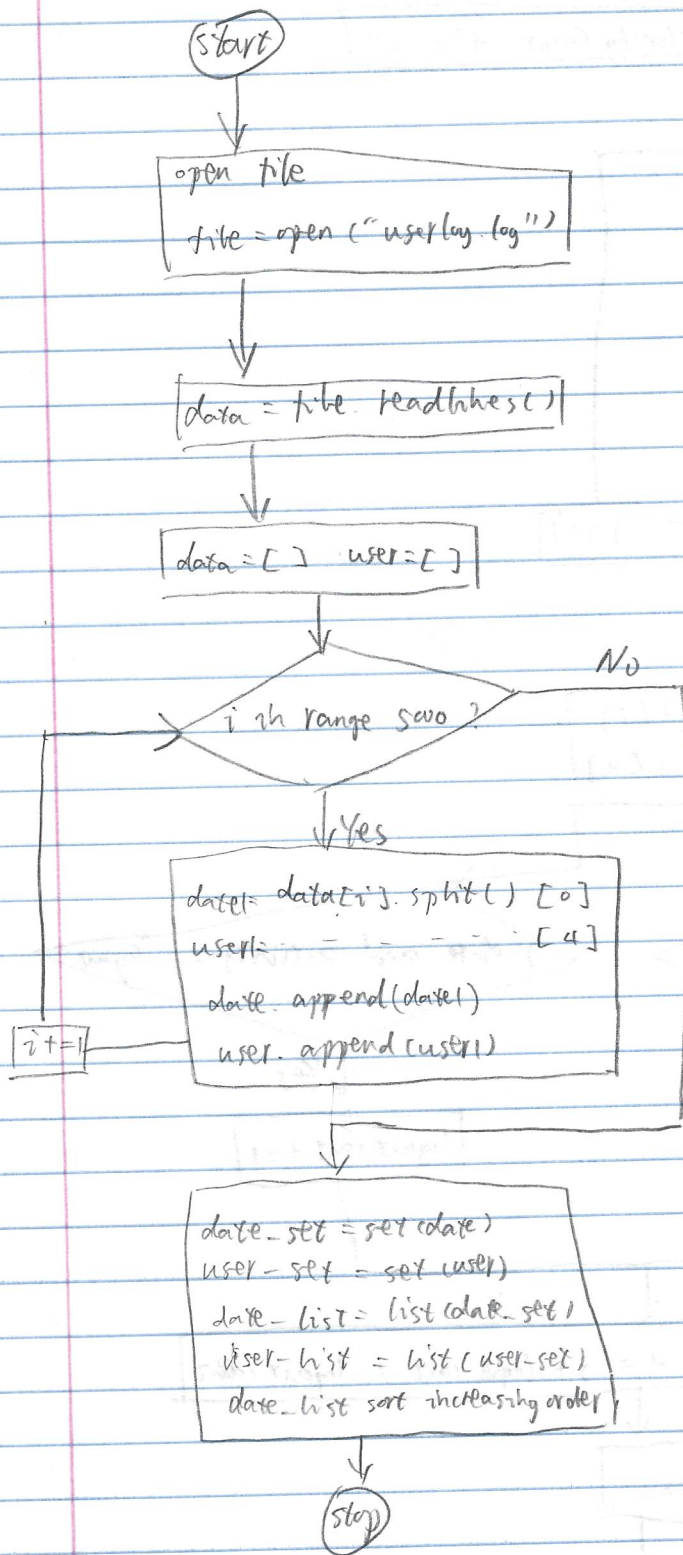 start
open file
file = open ("userlog.log")
data = file. readlines()
data = [ ] user = [ ]
i in range 5000 ?
No
Yes
date1= data[i]. split( ) [0]
user1= - - - - - [4]
date. append(date1)
user. append(user1)
i+=1
date_set = set(date)
user-set = set(user)
date-list = list(date_set)
user-list = list(user-set)
date_list sort increasing order
stop